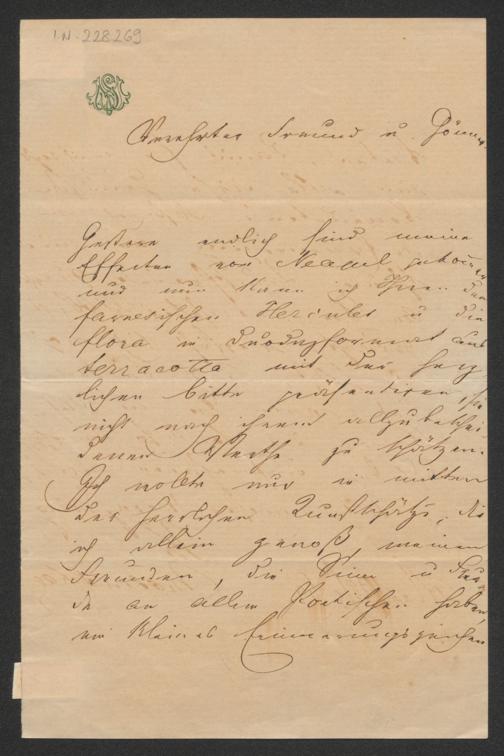 I.N. 228269
Verehrter Freund u. Gönner
Gestern endlich sind meine
Effecten von Neapel gekommen
und nun kann ich Ihnen den
farnesischen Hercules u die
flora in Duodezformat aus
terracotta mit der herz
lichen bitte präsentiren, sie
nicht nach ihrem allzubeschei
denen Werthe zu schätzen.
Ich wollte nur in mitten
der herrlichen Kunstschätze, die
ich allein genoß, meinen
Freunden, die Sinn u Freu
de an allem Poetischen haben,
ein kleines Erinnerungszeichen